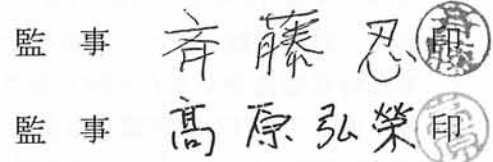 監事 斉藤忍 印
監事 髙原弘榮 印